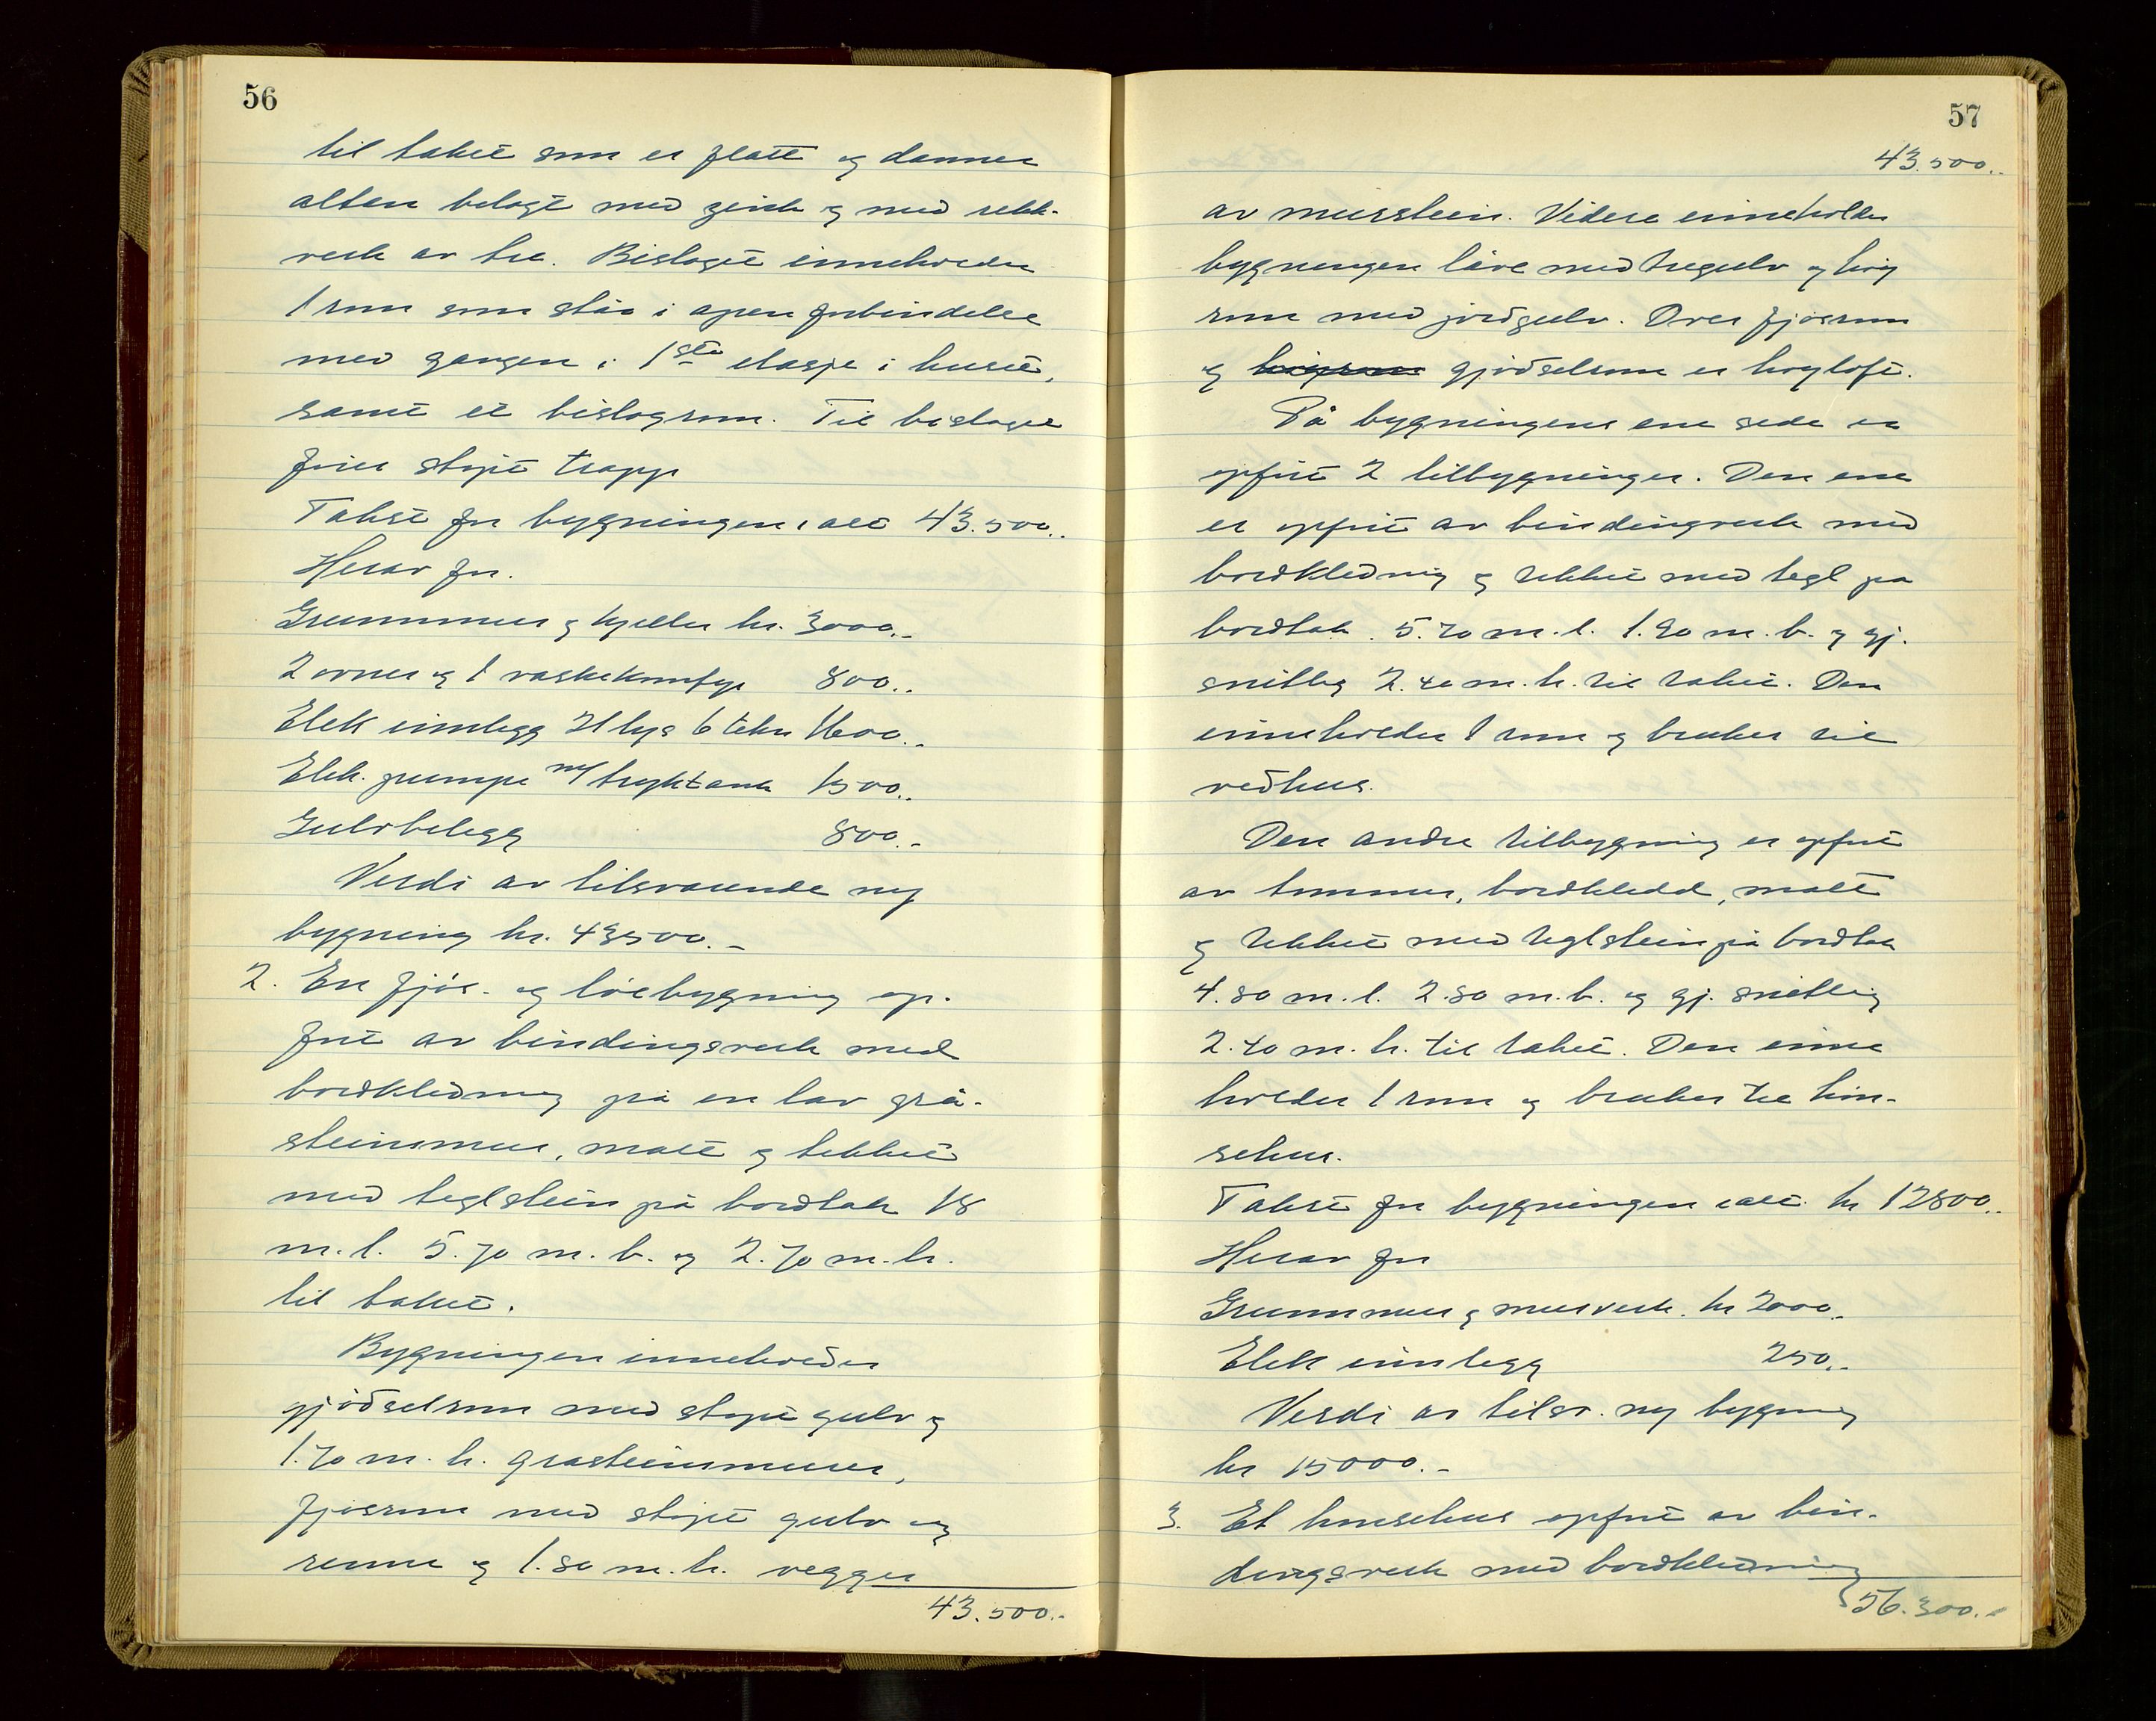 56
til taket som er flatt og danner
altan belagt med zink og med rekk-
verk av tre. Bislaget inneholder
1 rum som står i åpen forbindelse
med gangen i 1ste etasje i huset,
samt et bislagrum. Til bislaget
fører støpt trapp
Takst for bygningen i alt 43.500.-
Herav for.
Grunnmur og kjeller kr. 3000.-
2 ovner og 1 vaskekomfyr 800.-
Elek innlegg 21 lys 6 tekn 1600.-
Elek. pumpe m/ trykktank 1500.-
Gulvbelegg 800.-
Verdi av tilsvarende ny
bygning kr. 43500.-
2. En fjøs- og løebygning op-
ført av bindingsverk med
bordkledning på en lav grå-
steinsmur, malt og tekket
med teglstein på bordtak 18
m.l. 5.70 m.b. og 2.70 m.h.
til taket.
Bygningen inneholder
gjødselrum med støpt gulv og
1.70 m.h. gråsteinsmurer,
fjøsrum med støpt gulv og
renne og 1.80 m.h. vegger
43.500.-
57
43.500.-
av murstein. Videre inneholder
bygningen låve med tregulv og høy
rum med jordgulv. Over fjøsrum
og høyrum gjødselrum er høyloft.
På bygningens ene side er
opført 2 tilbygninger. Den ene
er opført av bindingverk med
bordkledning og tekket med tegl på
bordtak. 5.70 m.l. 1.90 m.b. og gj.
snittlig 2.40 m.h. til taket. Den
inneholder 1 rum og brukes til
vedhus.
Den andre tilbygning er opført
av tømmer, bordkledd, malt
og tekket med teglstein på bordtak
4.80 m.l. 2.80 m.b. og gj. snittlig
2.40 m.h. til taket. Den inne
holder 1 rum og brukes til høn-
sehus.
Takst for bygningen i alt. kr 12800.-
Herav for
Grunnmur og murverk. kr 2000.-
Elek innlegg 250.-
Verdi av tilsv. ny bygning
kr 15000.-
3. Et hønsehus opført av bin-
dingsverk med bordkledning
56.300.-